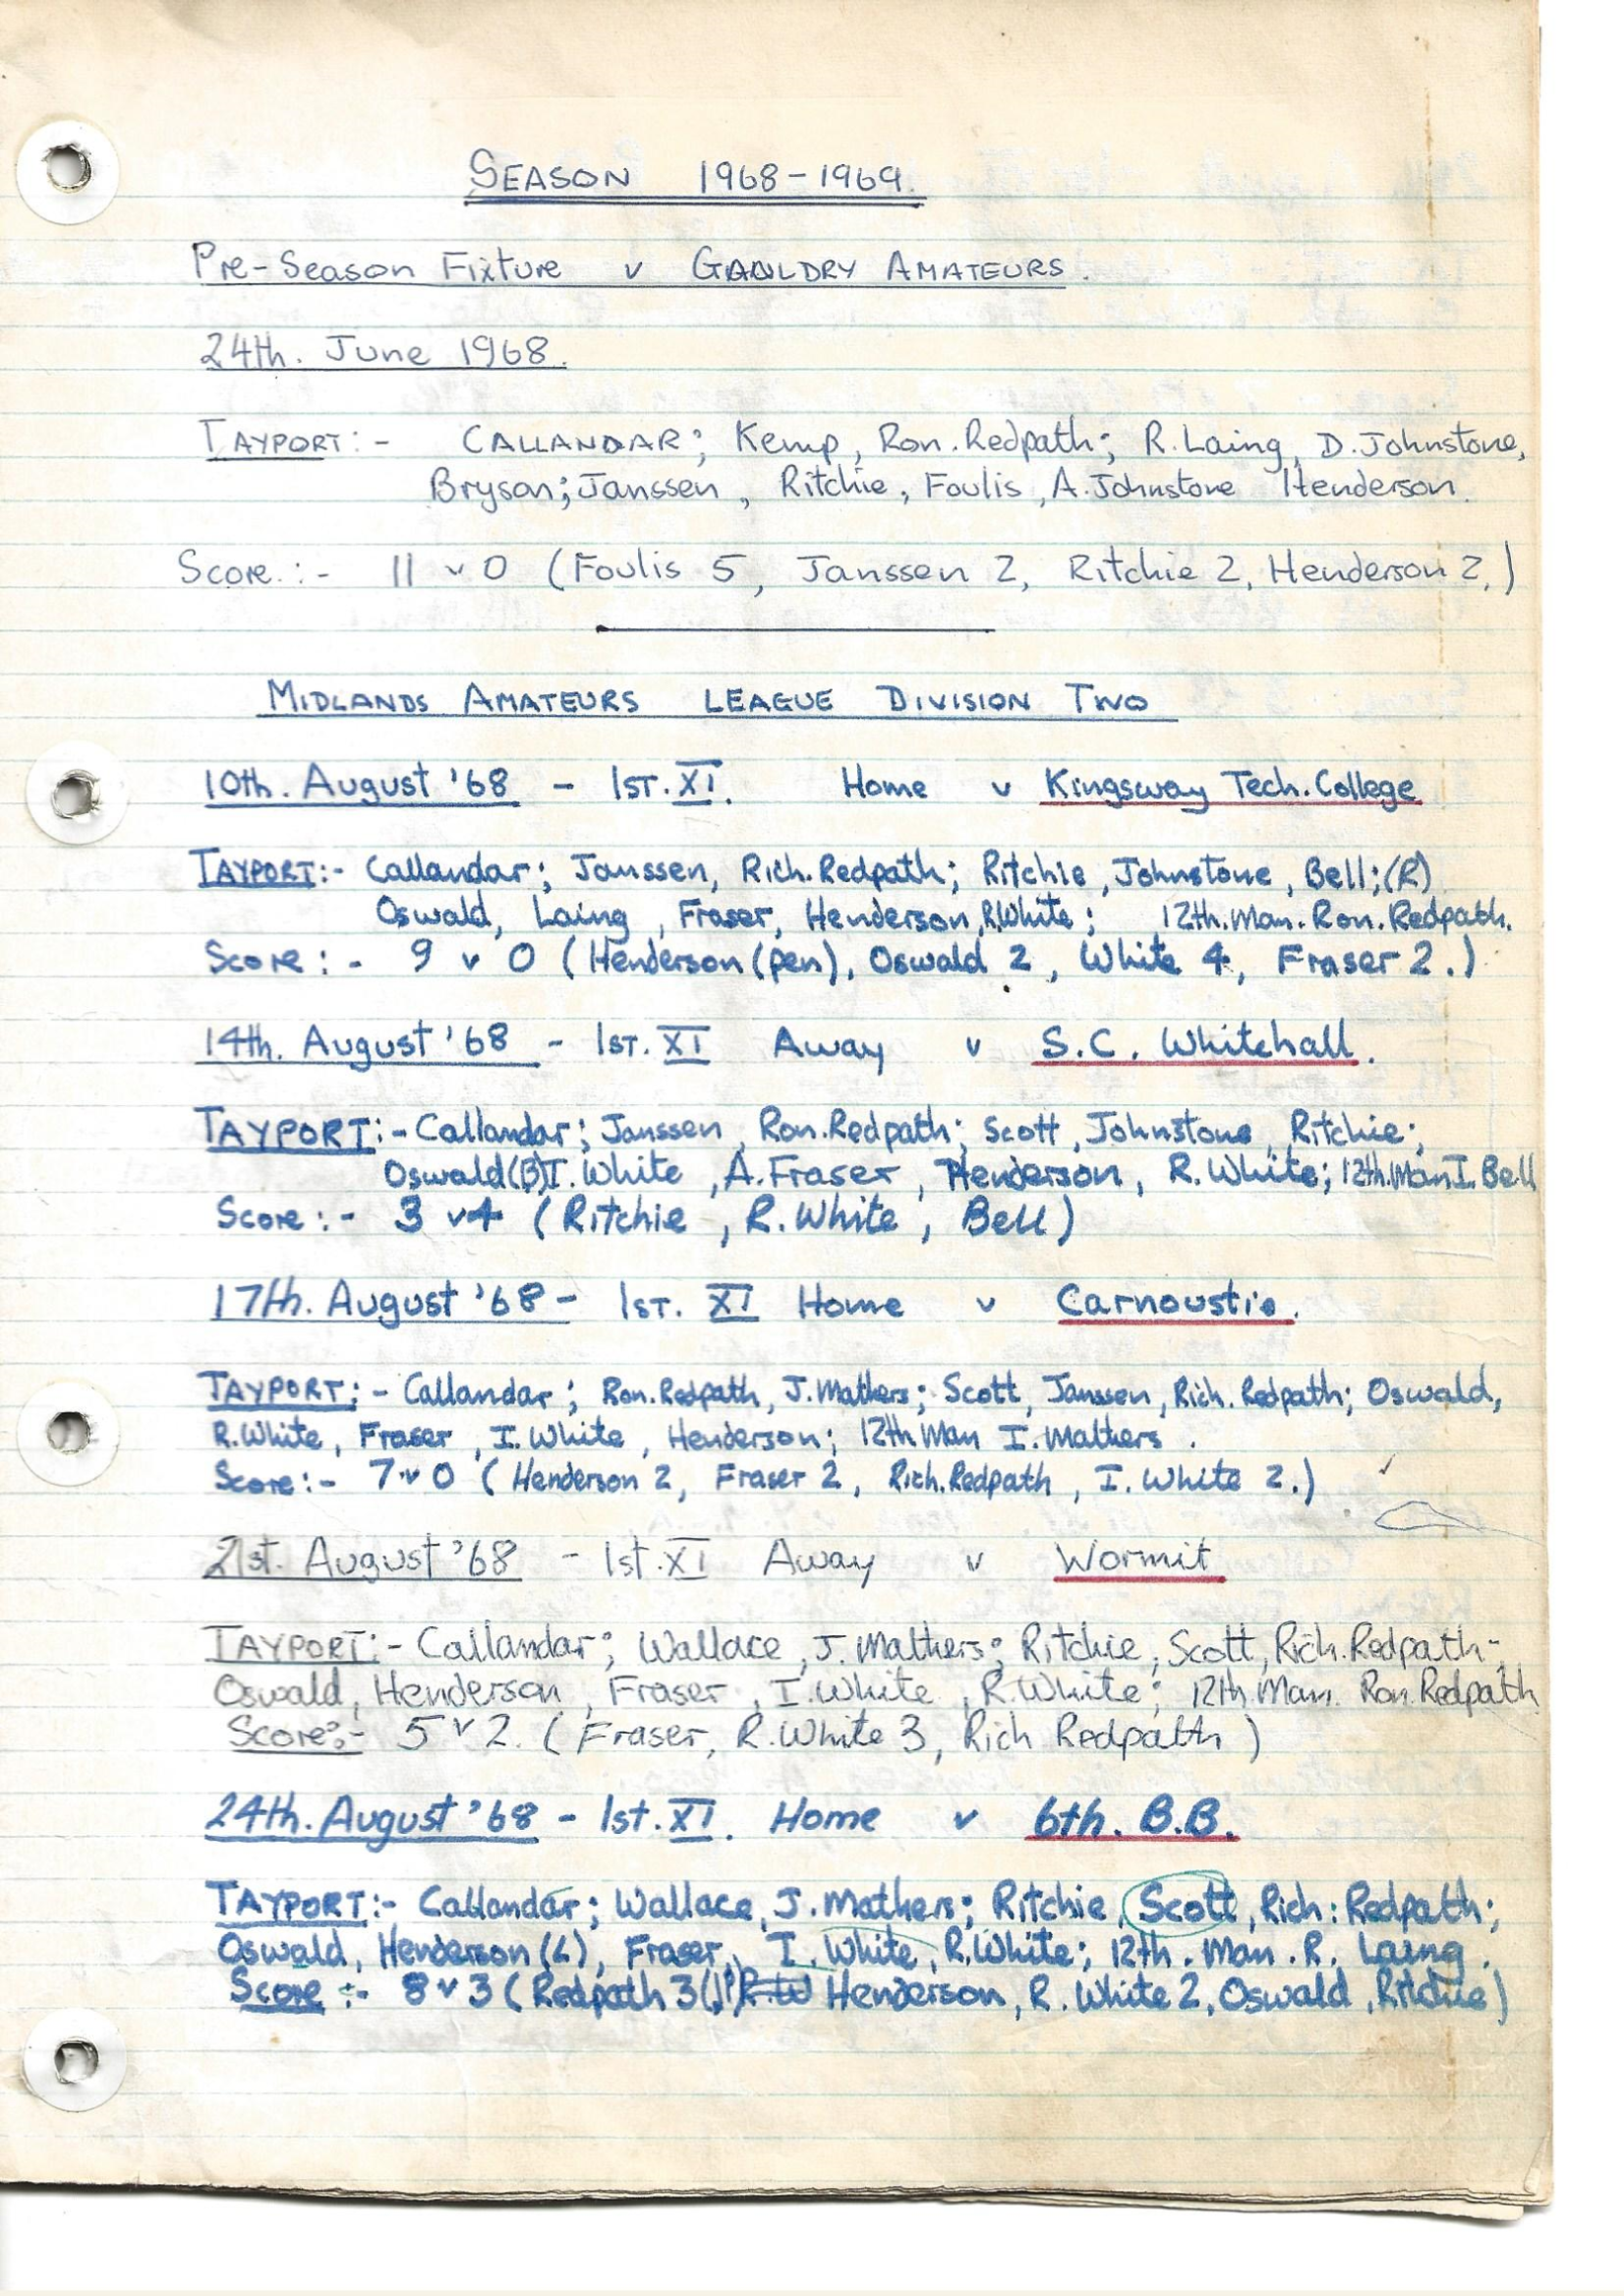 SEASON 1968-1969.
Pre-Season Fixture v GAULDRY AMATEURS.
24th. June 1968.
TAYPORT:- CALLANDAR; Kemp, Ron.Redpath; R.Laing, D.Johnstone,
Bryson; Janssen, Ritchie, Foulis, A.Johnstone Henderson.
Score.:- 11 v 0 (Foulis 5, Janssen 2, Ritchie 2, Henderson 2,)
MIDLANDS AMATEURS LEAGUE DIVISION TWO
10th. August '68 - 1ST. XI. Home v Kingsway Tech. College
TAYPORT:- Callandar; Janssen, Rich.Redpath; Ritchie, Johnstone, Bell;(R)
Oswald, Laing, Fraser, Henderson, R.White; 12th.Man. Ron.Redpath.
Score:- 9 v 0 (Henderson (pen), Oswald 2, White 4, Fraser 2.)
14th. August '68 - 1ST. XI Away v S.C. Whitehall.
TAYPORT:- Callandar; Janssen, Ron.Redpath; Scott, Johnstone, Ritchie;
Oswald(B) I. White, A.Fraser, Henderson, R.White; 12th.Man I. Bell
Score:- 3 v 4 (Ritchie, R.White, Bell)
17th. August '68 - 1ST. XI Home v Carnoustie.
TAYPORT:- Callandar; Ron.Redpath, J.Mathers; Scott, Janssen, Rich. Redpath; Oswald,
R.White, Fraser, I.White, Henderson; 12th Man I.Mathers.
Score:- 7 v 0 (Henderson 2, Fraser 2, Rich.Redpath, I. White 2.)
21st. August '68 - 1st. XI Away v Wormit
TAYPORT:- Callandar; Wallace, J.Mathers; Ritchie, Scott, Rich.Redpath-
Oswald, Henderson, Fraser, I.White, R.White; 12th Man. Ron.Redpath
Score:- 5 v 2. (Fraser, R.White 3, Rich Redpath)
24th. August '68 - 1st. XI. Home v 6th. B.B.
TAYPORT:- Callandar; Wallace, J.Mathers; Ritchie, Scott, Rich: Redpath;
Oswald, Henderson(L), Fraser, I. White, R.White; 12th. Man. R. Laing.
Score :- 8 v 3 (Redpath 3 Henderson, R.White 2, Oswald, Ritchie)